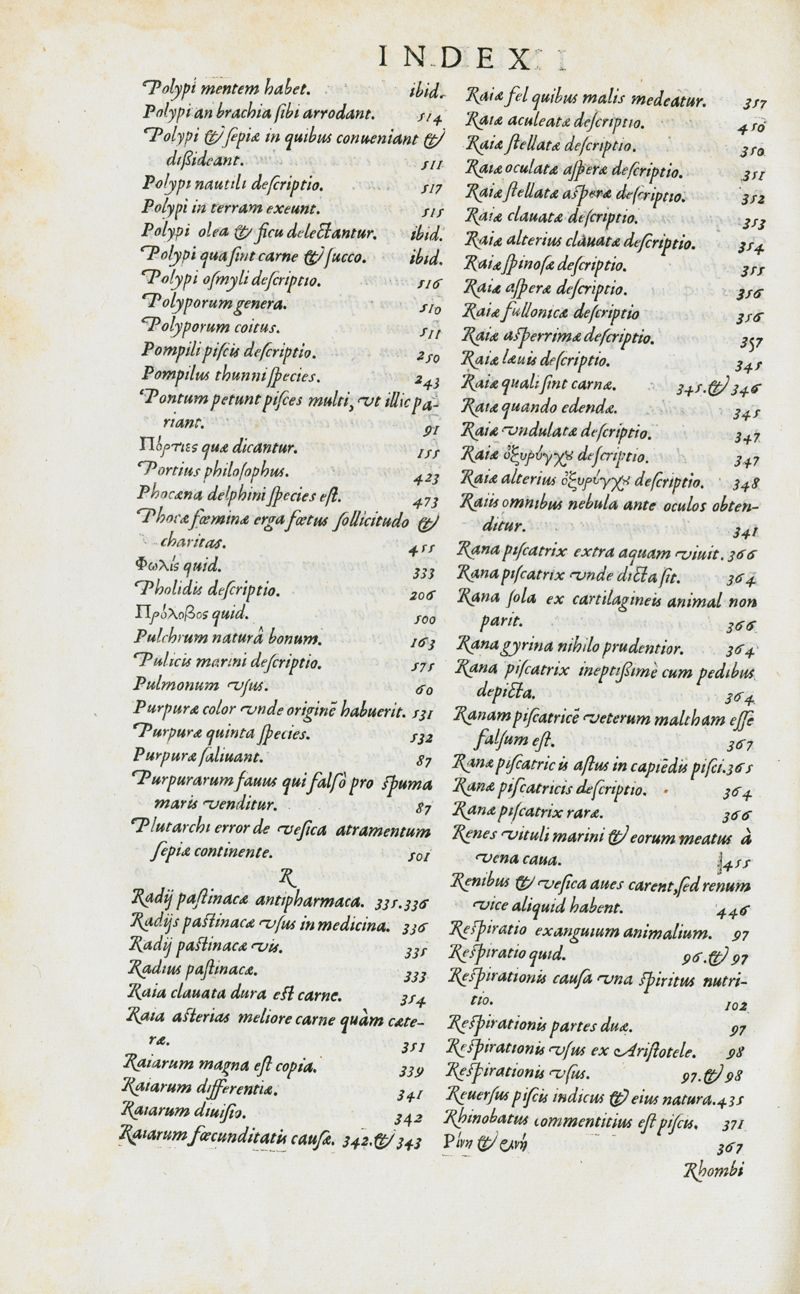 INDEX
Polypi mentem habet. ibid.
Polypi an brachia sibi arrodant. 514
Polypi & sepiæ in quibus conueniant &
dißideant. 511
Polypi nautili descriptio. 517
Polypi in terram exeunt. 515
Polypi olea & ficu delectantur. ibid.
Polypi qua sint carne & succo. ibid.
Polypi osmyli descriptio. 516
Polyporum genera. 510
Polyporum coitus. 511
Pompili piscis descriptio. 250
Pompilus thunni species. 243
Pontum petunt pisces multi, vt illic pa-
riant. 91
Πόρτιες quæ dicantur. 155
Portius philosophus. 423
Phocæna delphini species est. 473
Phocæ fœmina erga fœtus sollicitudo &
charitas. 455
Φωλὶς quid. 333
Pholidis descriptio. 206
Πρόλοβος quid. 500
Pulchrum naturâ bonum. 163
Pulicis marini descriptio. 575
Pulmonum vsus. 60
Purpuræ color vnde originē habuerit. 531
Purpuræ quinta species. 532
Purpuræ saliuant. 87
Purpurarum fauus qui falsò pro spuma
maris venditur. 87
Plutarchi error de vesica atramentum
sepiæ continente. 501
R
Radij pastinacæ antipharmaca. 335.336
Radijs pastinacæ vsus in medicina. 336
Radij pastinacæ vis. 335
Radius pastinacæ. 333
Raia clauata dura est carne. 354
Raia asterias meliore carne quàm cæte-
ræ. 351
Raiarum magna est copia. 339
Raiarum differentiæ. 341
Raiarum diuisio. 342
Raiarum fœcunditatis causæ. 342.& 343
Raiæ fel quibus malis medeatur. 357
Raiæ aculeatæ descriptio. 450
Raiæ stellatæ descriptio. 350
Raiæ oculatæ asperæ descriptio. 351
Raiæ stellatæ asperæ descriptio. 352
Raiæ clauatæ descriptio. 353
Raiæ alterius clauatæ descriptio. 354
Raiæ spinosæ descriptio. 355
Raiæ asperæ descriptio. 356
Raiæ fullonicæ descriptio 356
Raiæ asperrimæ descriptio. 357
Raiæ læuis descriptio. 345
Raiæ quali sint carnæ. 345.& 346
Raiæ quando edendæ. 345
Raiæ vndulatæ descriptio. 347
Raiæ ὀξυρύγχȣ descriptio. 347
Raiæ alterius ὀξυρύγχȣ descriptio. 348
Raiis omnibus nebula ante oculos obten-
ditur. 341
Rana piscatrix extra aquam viuit. 366
Rana piscatrix vnde dicta sit. 364
Rana sola ex cartilagineis animal non
parit. 366
Rana gyrina nihilo prudentior. 364
Rana piscatrix ineptißimè cum pedibus
depicta. 364
Ranam piscatricē veterum maltham esse
falsum est. 367
Ranæ piscatricis astus in capiēdis pisci. 365
Ranæ piscatricis descriptio. 364
Ranæ piscatrix raræ. 366
Renes vituli marini & eorum meatus à
vena caua. 455
Renibus & vesica aues carent, sed renum
vice aliquid habent. 446
Respiratio exanguium animalium. 97
Respiratio quid. 96.& 97
Respirationis causa vna spiritus nutri-
tio. 102
Respirationis partes duæ. 97
Respirationis vsus ex Aristotele. 98
Respirationis vsus. 97.& 98
Reuersus piscis indicus & eius natura. 435
Rhinobatus commentitius est piscis. 371
Ρίνη & 367
Rhombi